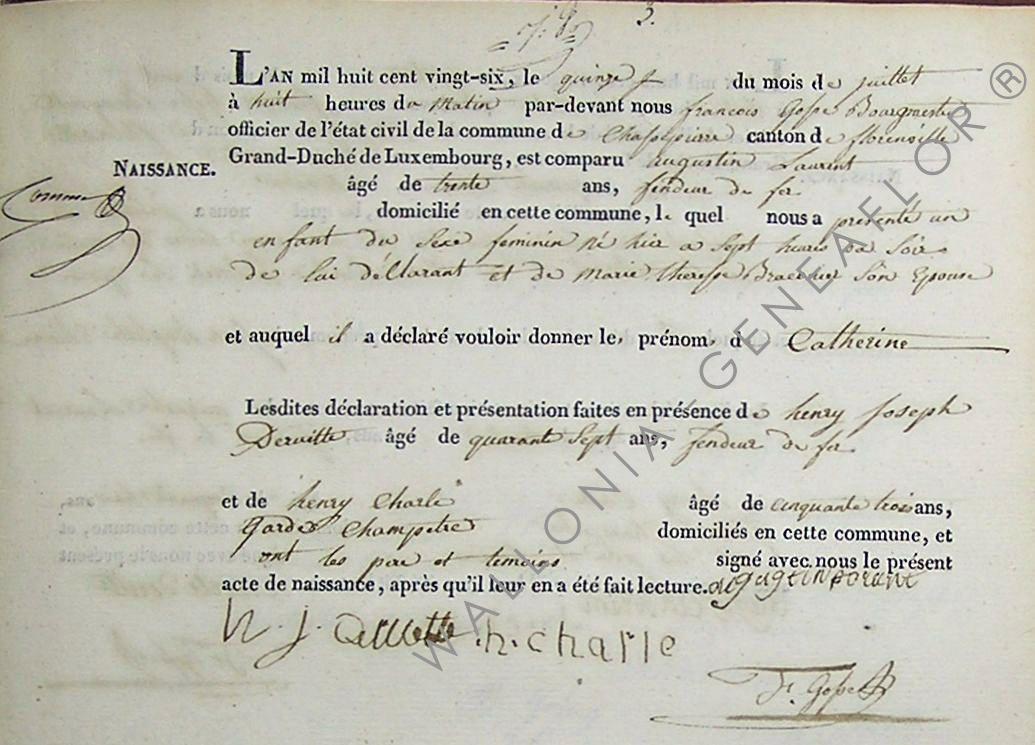 3.
L'AN mil huit cent vingt-six, le quinze du mois de juillet
à huit heures du Matin par-devant nous francois Gosse Bourgmestre
officier de l'état civil de la commune de Chassepierre canton de florenville
NAISSANCE.
Grand-Duché de Luxembourg, est comparu augustin Laurent
âgé de trente ans, fendeur de fer
domicilié en cette commune, le quel nous a présenté un
enfant du Sexe feminin né hier a Sept heures du Soir
de lui déclarant et de marie therese Son Epouse
et auquel il a déclaré vouloir donner le prénom de Catherine
Lesdites déclaration et présentation faites en présence de henry Joseph
âgé de quarant Sept ans, fendeur de fer
et de henry Charle âgé de cinquante trois ans,
Garde Champetre domiciliés en cette commune, et
ont les pere et temoins signé avec nous le présent
acte de naissance, après qu'il leur en a été fait lecture.
h. j. h. charle
F. Gosse
WALLONIA GENEAFLOR ®